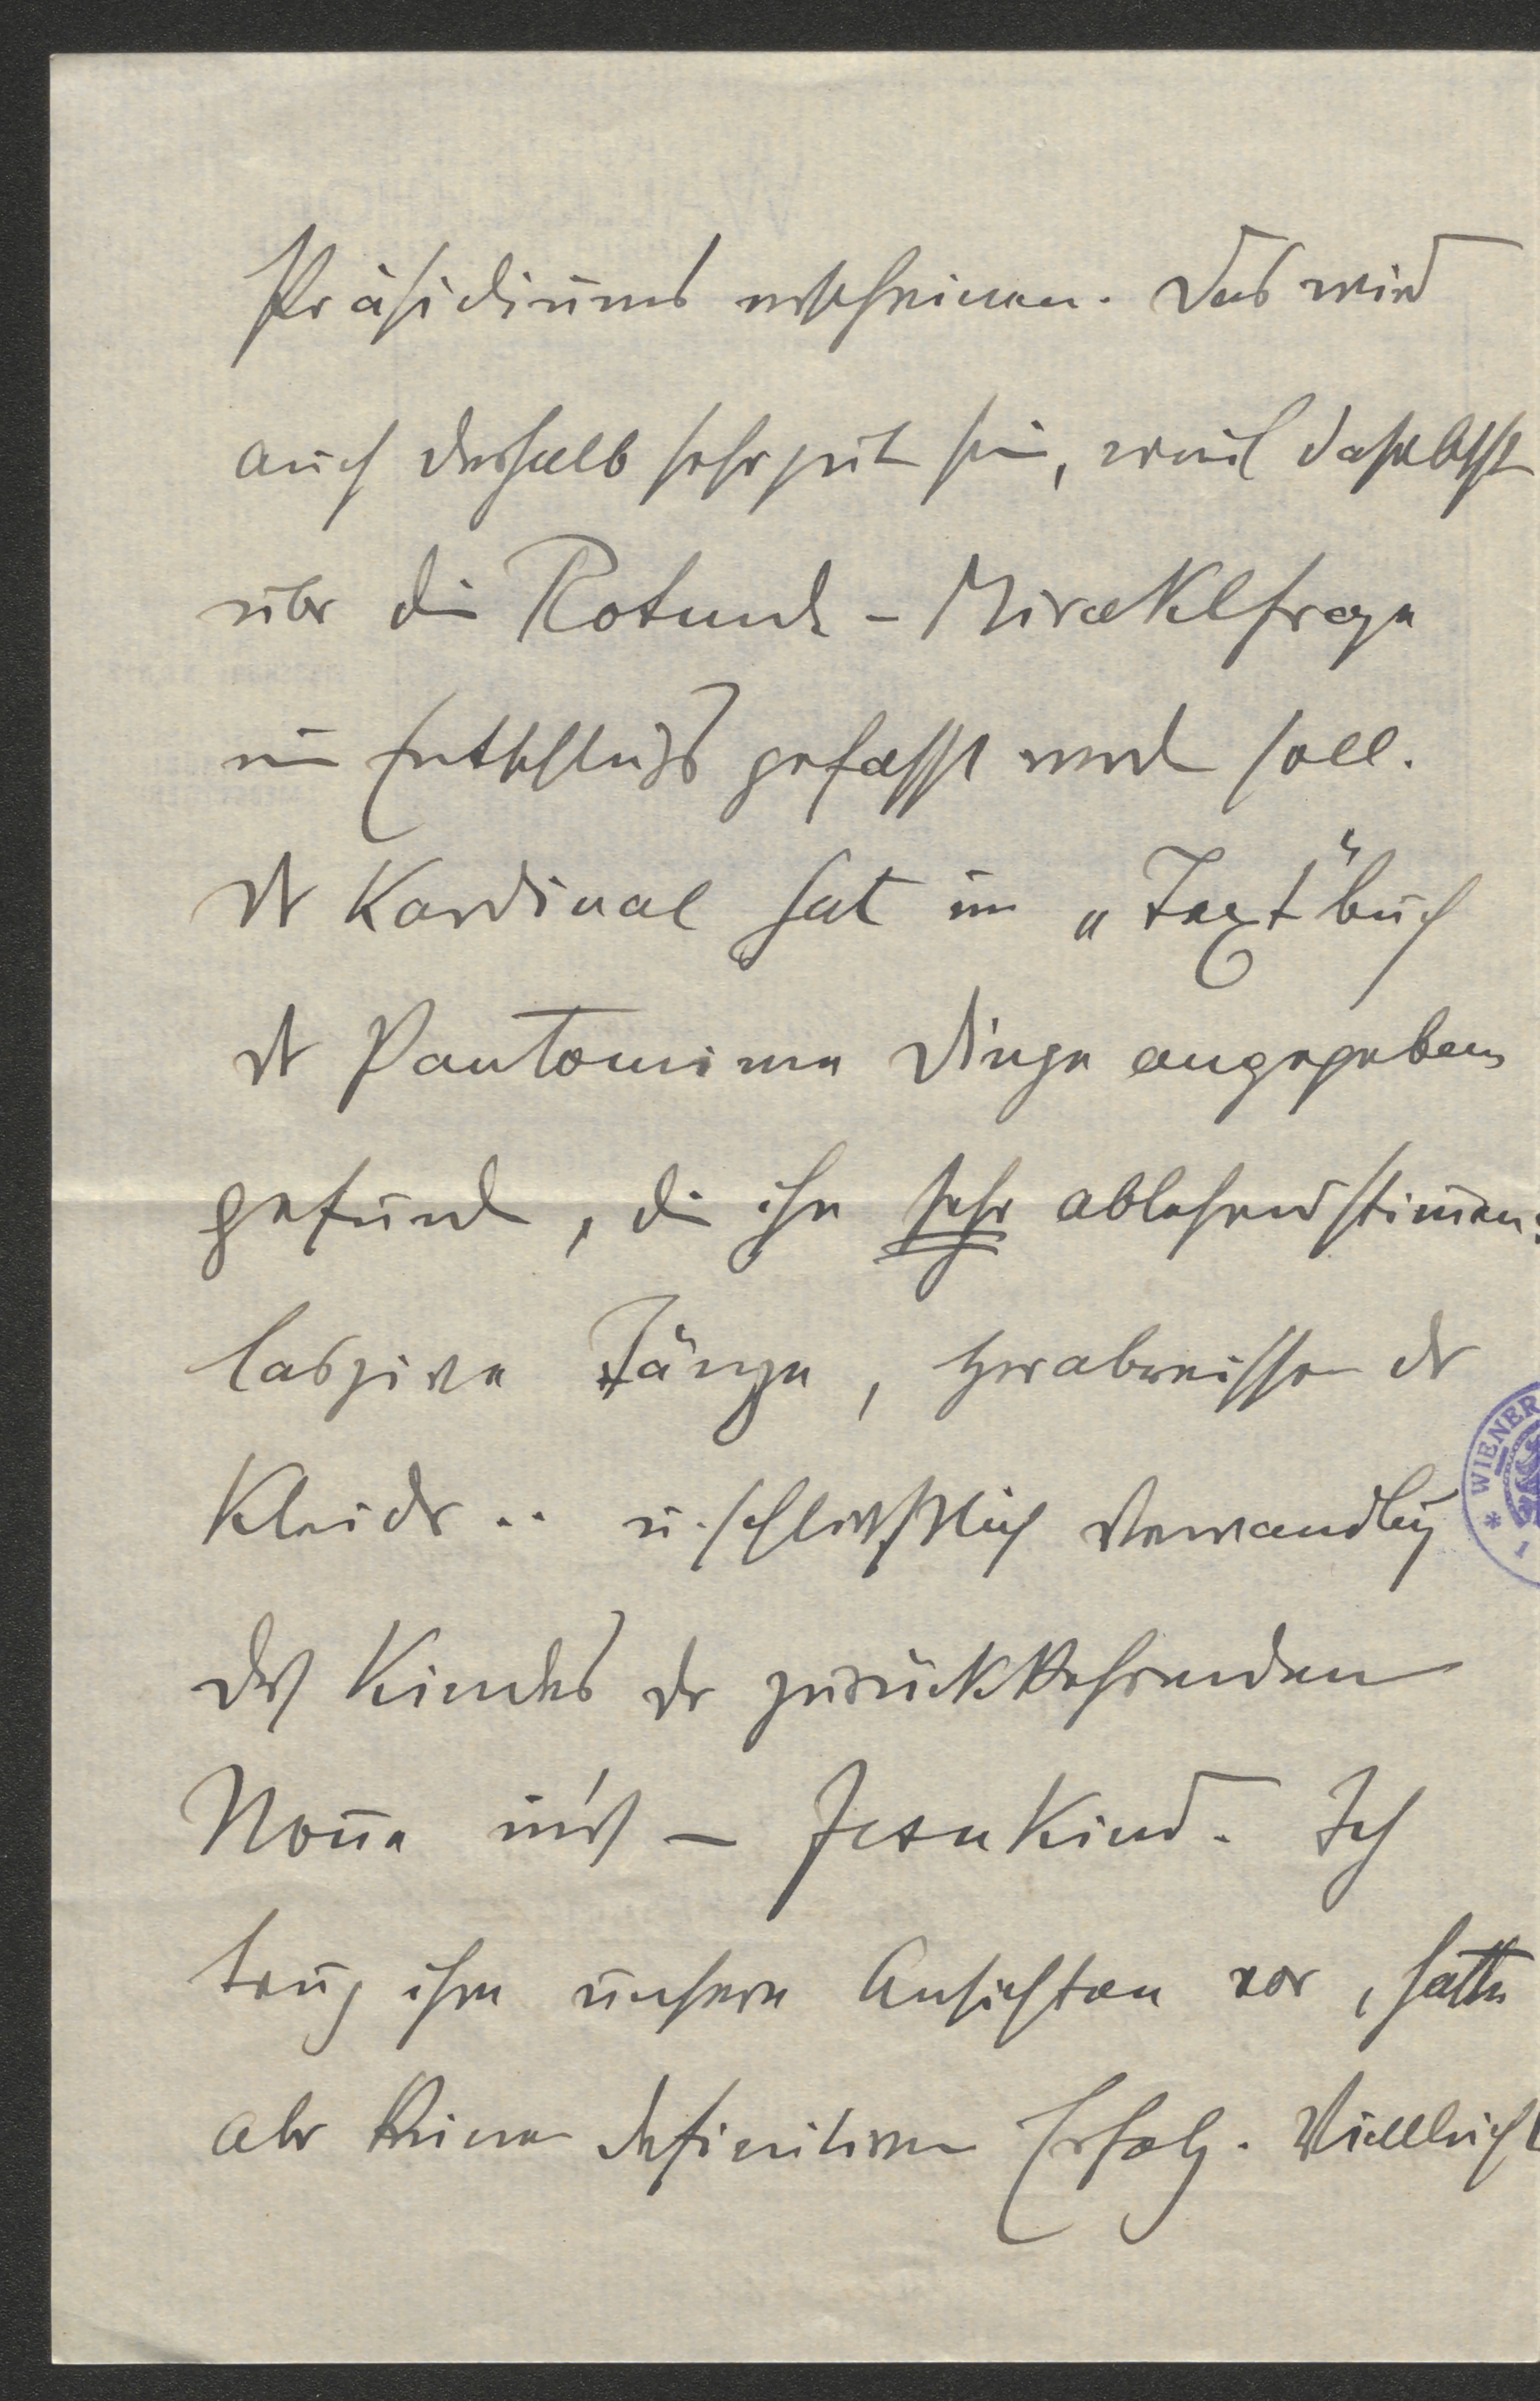 Präsidiums erscheinen. Das wird
auch deshalb sehr gut sein, weil daselbst
über die Rotunde-Miraklfrage
ein Entschluß gefasst werden soll.
Der Kardinal hat im „Text“buch
der Pantomime Dinge angegeben
gefunden, die ihn sehr ablehnend stim̅en:
laszive Tänze, Herabreissen der
Kleider .. u. schließlich Verwandlung
des Kindes der zurückkehrenden
Non̅e in's – Jesukind. Ich
trug ihm unsere Ansichten vor, hatte
aber keinen definitiven Erfolg. Vielleicht
WIENER